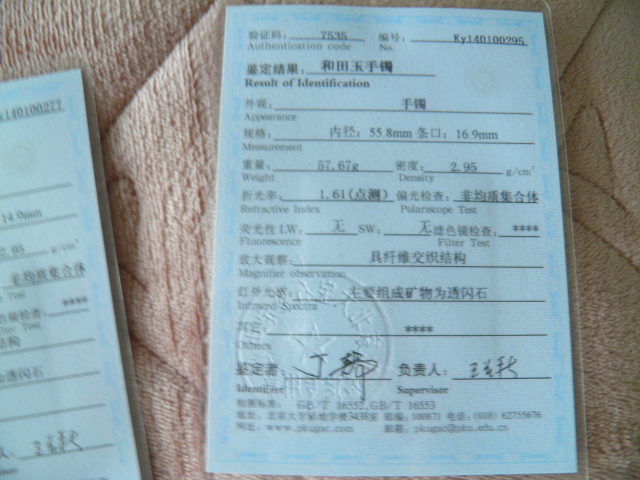 验证码: 7535 编号: Ky140100295
Authentication code No.
鉴定结果: 和田玉手镯
Result of Identification
外观: 手镯
Appearance
规格: 内径: 55.8mm 条口: 16.9mm
Measurement
重量: 57.67g 密度: 2.95 g/cm³
Weight Density
折光率: 1.61(点测) 偏光检查: 非均质集合体
Refractive Index Polariscope Test
荧光性 LW: 无 SW: 无 滤色镜检查: ****
Fluorescence Filter Test
放大观察: 具纤维交织结构
Magnifier observation
红外光谱: 主要组成矿物为透闪石
Infrared Spectra
其它: ****
Others
鉴定者: 负责人:
Identifier Supervisor
检测标准: GB/T 16552,GB/T 16553
地址: 北京大学新地学楼3438室 邮编: 100871 电话: (010) 62755676
网址: www.pkugac.com 邮箱: pkugac@pku.edu.cn
Ky140100277
14.9mm
2.95 g/cm³
非均质集合体
Test
****
Test
结构
透闪石